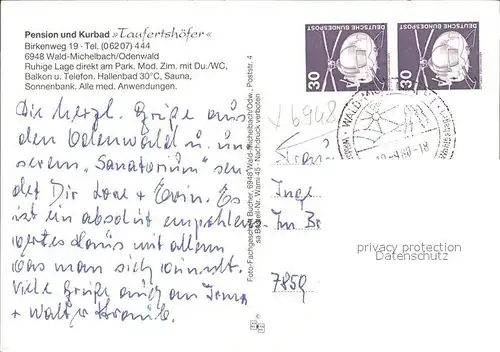 Pension und Kurbad »Taufertshöfer«
Birkenweg 19 · Tel. (06207) 444
6948 Wald-Michelbach/Odenwald
Ruhige Lage direkt am Park. Mod. Zim. mit Du./WC,
Balkon u. Telefon. Hallenbad 30°C, Sauna,
Sonnenbank. Alle med. Anwendungen.
Die herzl. Grüße aus
dem Odenwald u. un
serem „Sanatorium" sen
det Dir Lore + Erwin. Es
ist ein absolut empfehlens
wertes Haus mit allem
was man sich wünscht.
Viele Grüße auch an Irma
+ Walter
Foto-Fachgeschäft Bucher, 6948 Wald-Michelbach/Odw. · Poststr. 4
Nachdruck verboten
DEUTSCHE BUNDESPOST
30
DEUTSCHE BUNDESPOST
30
6948
WALD-
-18
Inge
Im Br
7859
privacy protection
Datenschutz